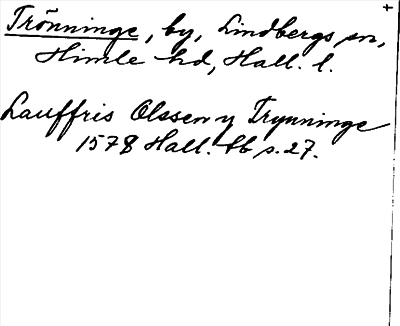 Trönninge, by, Lindbergs sn,
Himle hd, Hall. l.
Lauffris Olssen y Trynninge
1578 Hall. tb s. 27.